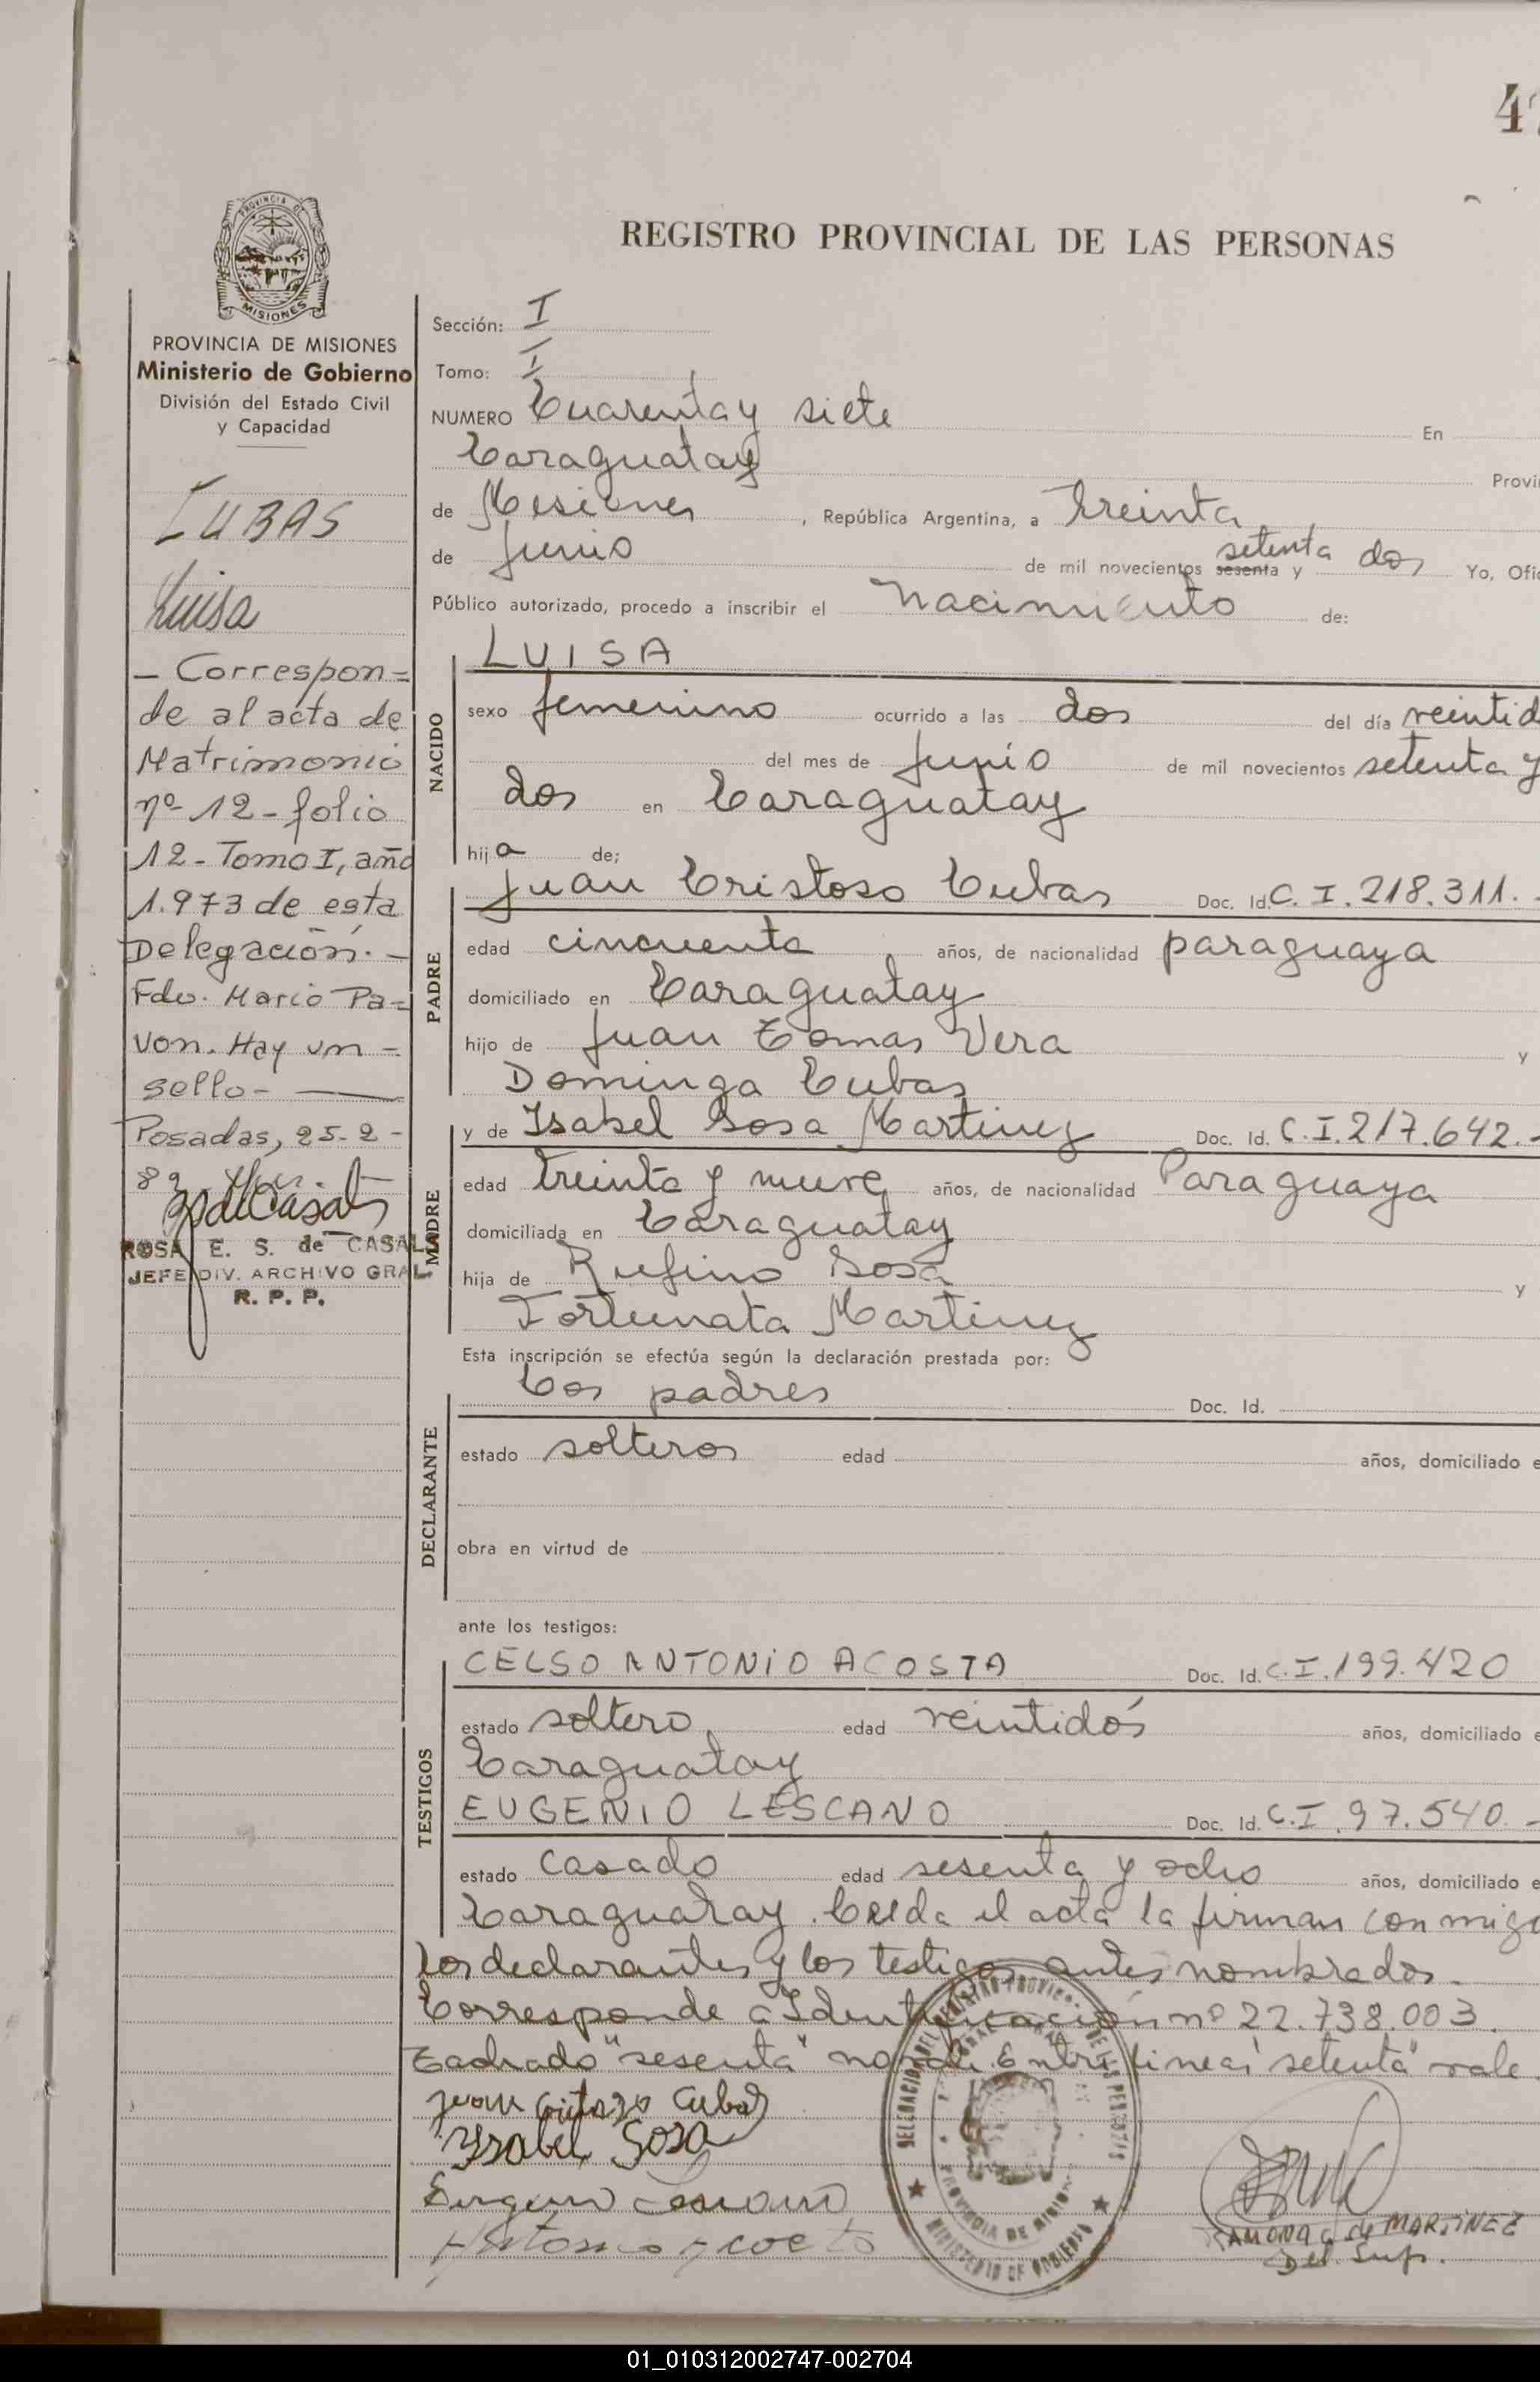 47
PROVINCIA DE
MISIONES
REGISTRO PROVINCIAL DE LAS PERSONAS
PROVINCIA DE MISIONES
Ministerio de Gobierno
División del Estado Civil
y Capacidad
CUBAS
Luisa
— Correspon=
de al acta de
Matrimonio
nº 12 - folio
12 - Tomo I, año
1.973 de esta
Delegación. —
Fdo. Mario Pa=
von. Hay un —
sello - —
Posadas, 25-2-
ROSA E. S. de CASALS
JEFE DIV. ARCHIVO GRAL.
R. P. P.
Sección: I
Tomo: I
NUMERO Cuarenta y siete En
Caraguatay Provi
de Misiones, República Argentina, a treinta
setenta
de Junio de mil novecientos sesenta y dos Yo, Ofi
Público autorizado, procedo a inscribir el nacimiento de:
NACIDO
LUISA
sexo femenino ocurrido a las dos del día veintid
del mes de Junio de mil novecientos setenta y
dos en Caraguatay
hija de;
PADRE
Juan Cristoso Cubas Doc. Id. C. I. 218.311. -
edad cincuenta años, de nacionalidad paraguaya
domiciliado en Caraguatay
hijo de Juan Tomas Vera y
Dominga Cubas
MADRE
y de Isabel Sosa Martinez Doc. Id. C. I. 217.642. -
edad treinta y nueve años, de nacionalidad Paraguaya
domiciliada en Caraguatay
hija de Rufino Sosa y
Fortunata Martinez
Esta inscripción se efectúa según la declaración prestada por:
DECLARANTE
Los padres Doc. Id.
estado solteros edad años, domiciliado e
obra en virtud de
ante los testigos:
TESTIGOS
CELSO ANTONIO ACOSTA Doc. Id. C. I. 199.420
estado soltero edad veintidós años, domiciliado e
Caraguatay
EUGENIO LESCANO Doc. Id. C. I. 97.540. -
estado casado edad sesenta y ocho años, domiciliado e
Caraguatay. Leida el acta la firman conmigo
los declarantes y los testigos antes nombrados.
Corresponde a Identificación nº 22.738.003.
Tachado "sesenta" no vale. Entre lineas "setenta" vale.
Juan Cubas
Ysabel Sosa
Eugenio Lescano
Antonio Acosta
DELEGACION DEL REGISTRO PROVINCIAL DE LAS PERSONAS
PROVINCIA DE MISIONES
MINISTERIO DE GOBIERNO
RAMONA G de MARTINEZ
Del. Sup.
01_010312002747-002704